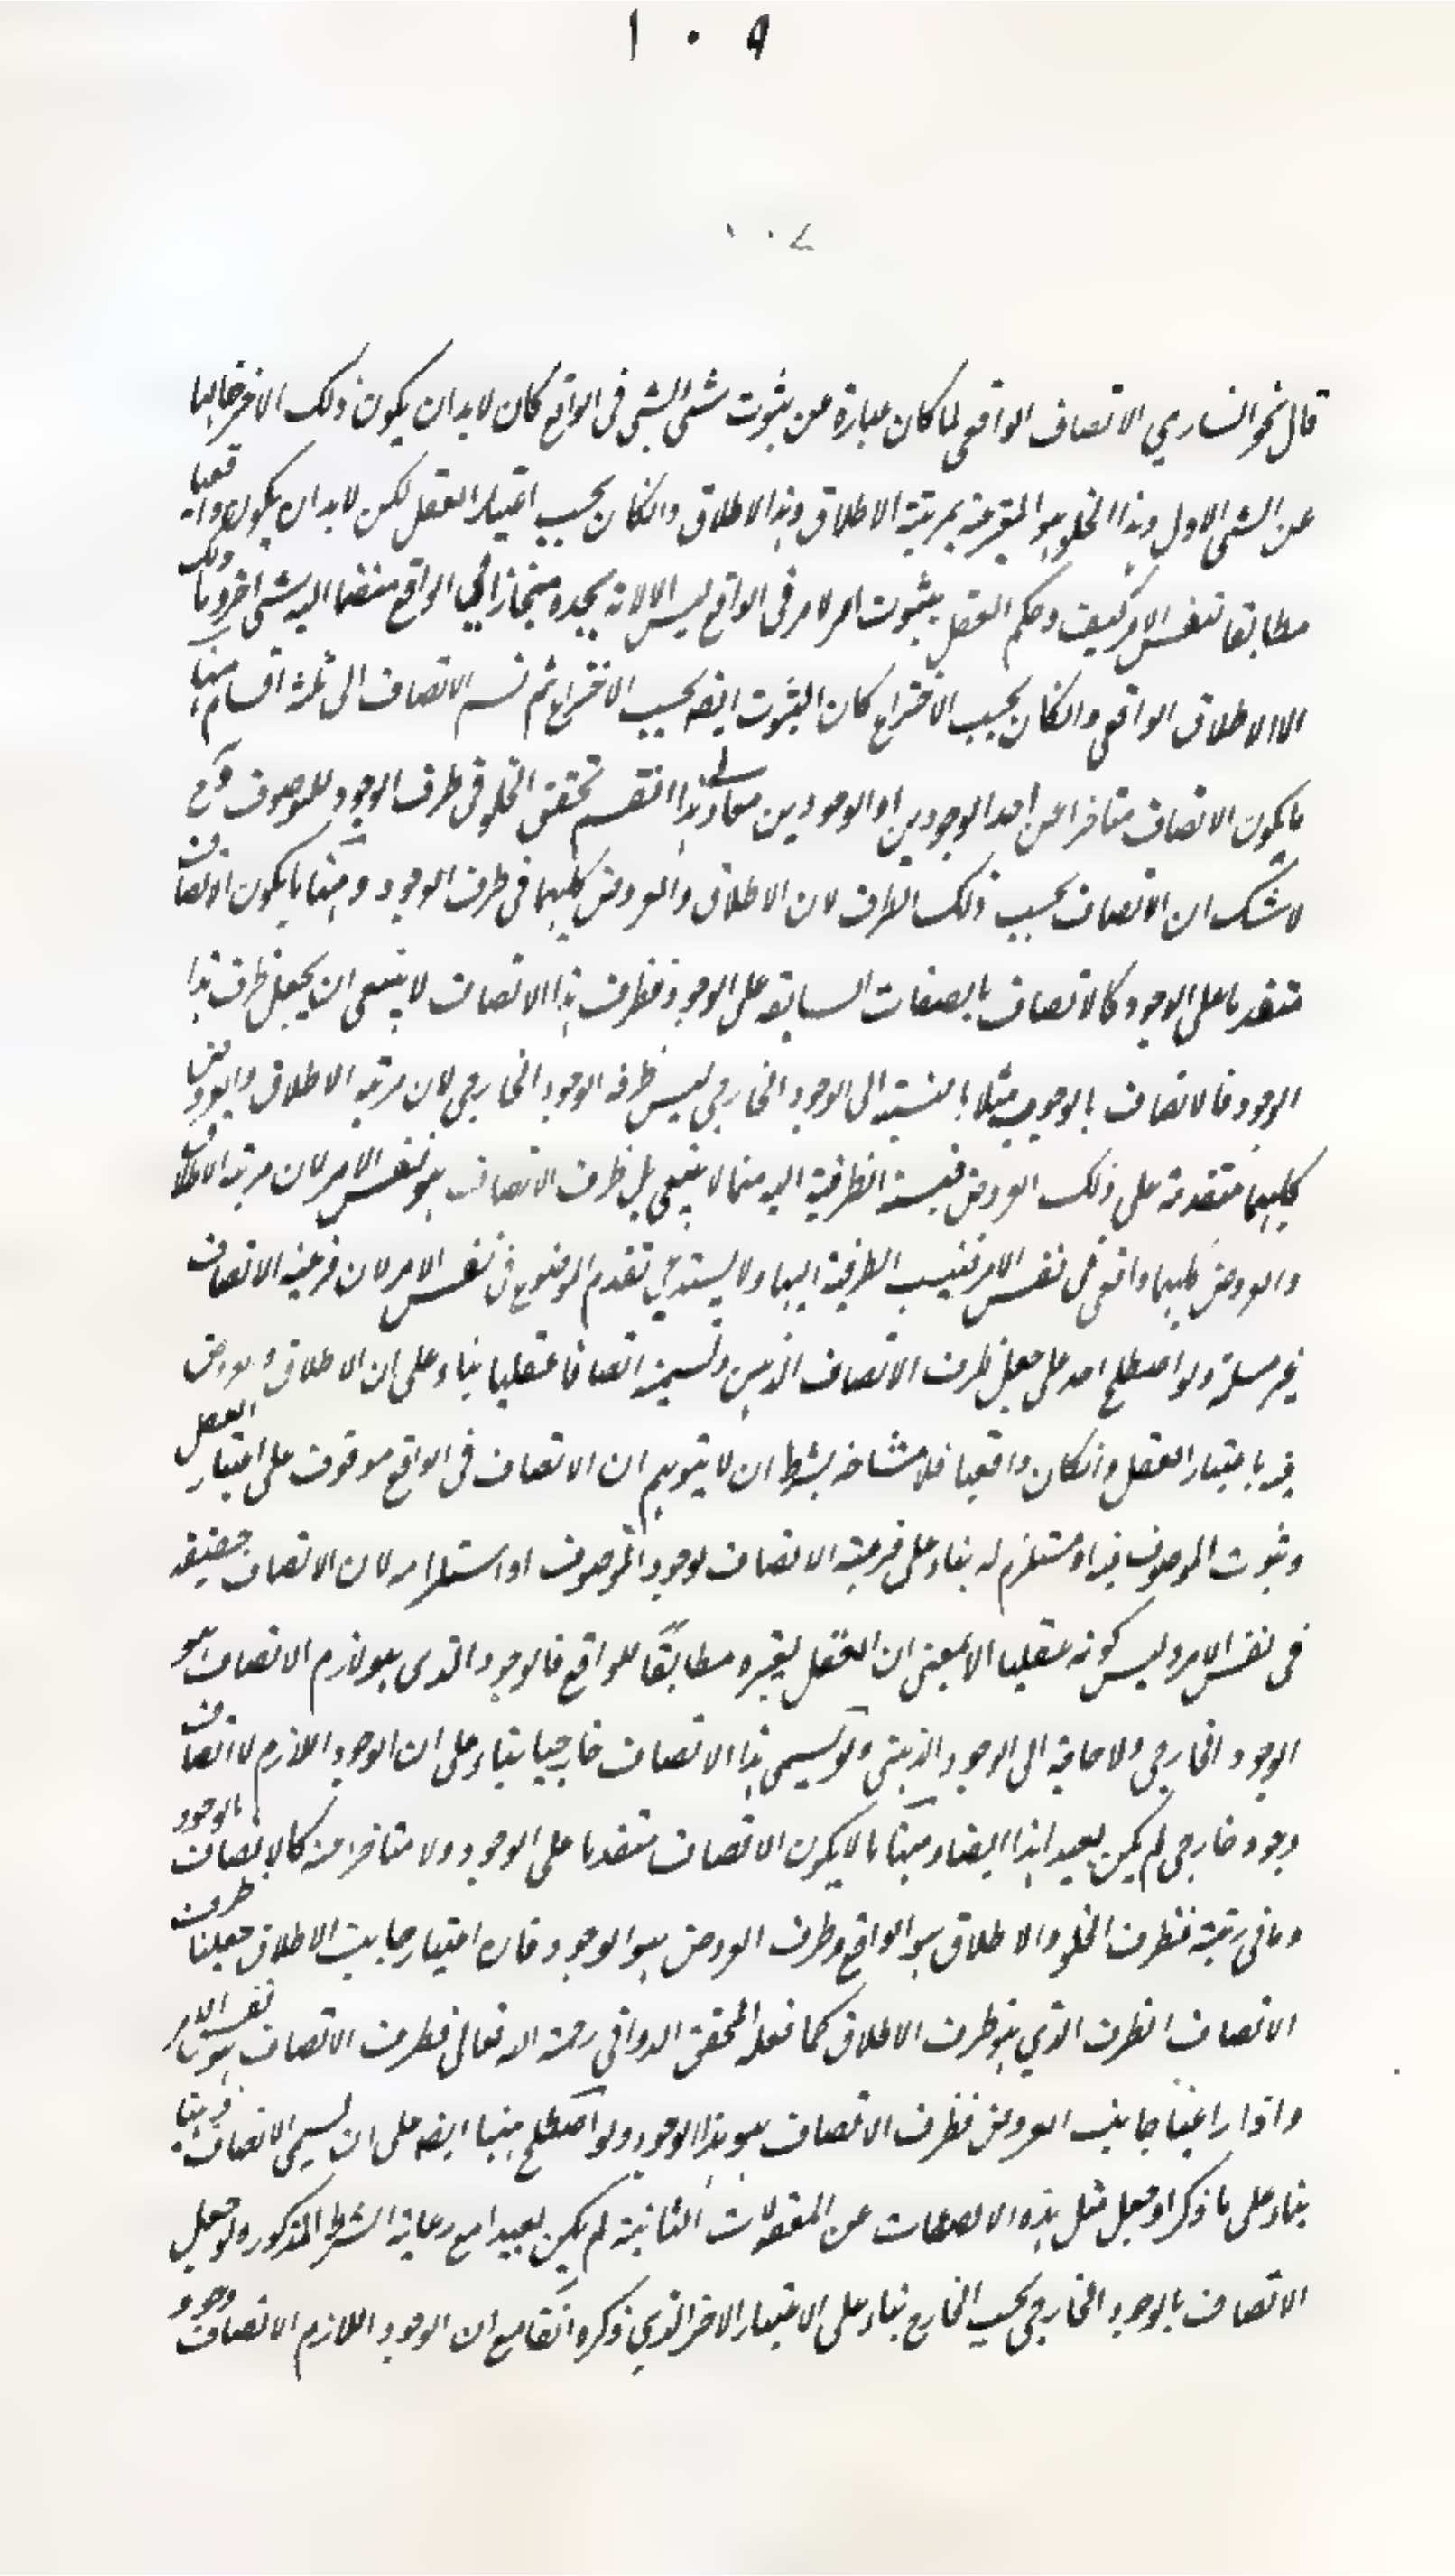 ١٠٩
١٠٧
قال فخر السارى الاتصاف الواقعى لما كان عبارة عن ثبوت شى لشى فى الواقع كان لابد ان يكون ذلك الاخر خاليا
عن الشى الاول وهذا الخلو هو المعبر عنه بمرتبة الاطلاق وهذا الاطلاق وانكان بحسب اعتبار العقل لكن لابد ان يكون واقعيا
مطابقا لنفس الامر كيف وحكم العقل بثبوت امر لامر فى الواقع ليس الا لانه يجده منحازا فى الواقع منضما اليه شى اخر وما ذلك
الا الاطلاق الواقعى وانكان بحسب الاختراع كان الثبوت ايضه بحسب الاختراع ثم قسم الاتصاف الى ثلثة اقسام منها
ما يكون الاتصاف متاخرا عن احد الوجودين او الوجودين معا وفى هذا القسم تحقق الخلو فى ظرف الوجود للموصوف وح
لا شك ان الاتصاف بحسب ذلك الظرف لان الاطلاق والعروض كليهما فى ظرف الوجود ومنها ما يكون الاتصاف
متقدما على الوجود كالاتصاف بالصفات السابقه على الوجود فظرف هذا الاتصاف لا ينبغى ان يجعل ظرف هذا
الوجود فالاتصاف بالوجوب مثلا بالنسبة الى الوجود الخارجى ليس ظرفه الوجود الخارجى لان مرتبة الاطلاق والعروض
كليهما متقدمة على ذلك العروض فنسبة الظرفية اليه مما لا ينبغى بل ظرف الاتصاف هو نفس الامر لان مرتبة الاطلاق
والعروض كليهما واقعى فى نفس الامر فينسب الظرفية اليها ولا يستدعى تقدم الموضوع فى نفس الامر لان فرعية الاتصاف
غير مسلمة ولو اصطلح احد على جعل ظرف الاتصاف الذهن وتسميته اتصافا عقليا بناء على ان الاطلاق والعروض
فيه باعتبار العقل وانكان واقعيا فلا مشاحة بشرط ان لا يتوهم ان الاتصاف فى الواقع موقوف على اعتبار العقل
وثبوت الموصوف فيه او مستلزم له بناء على فرعية الاتصاف لوجود الموصوف او استلزامه لان الاتصاف حقيقة
فى نفس الامر وليس كونه عقليا الا بمعنى ان العقل يعتبره مطابقا للواقع فالوجود الذى هو لازم الاتصاف هو
الوجود الخارجى ولا حاجة الى الوجود الذهنى ولو سمى هذا الاتصاف خارجيا بناء على ان الوجود اللازم للاتصاف
وجود خارجى لم يكن بعيدا هذا ايضا ومنها ما لا يكون الاتصاف متقدما على الوجود ولا متاخرا منه كالاتصاف بالوجود
وما فى رتبته فظرف الخلو والاطلاق هو الواقع وظرف العروض هو الوجود فان اعتبار جانب الاطلاق جعلنا ظرف
الاتصاف الظرف الذي هو ظرف الاطلاق كما فعله المحقق الدوانى رحمة الله تعالى فظرف الاتصاف هونا نفس الامر
واذا راعينا جانب العروض فظرف الاتصاف هو هذا الوجود ولو اصطلح ههنا ايضه على ان يسمى الاتصاف ذهنيا
بناء على ما ذكر او جعل مثل هذه الاتصافات عن المعقولات الثانية لم يكن بعيدا مع رعاية الشرط المذكور ولو جعل
الاتصاف بالوجود الخارجى بحسب الخارج بناء على الاعتبار الاخر الذي ذكره انفا مع ان الوجود اللازم الاتصاف وجود